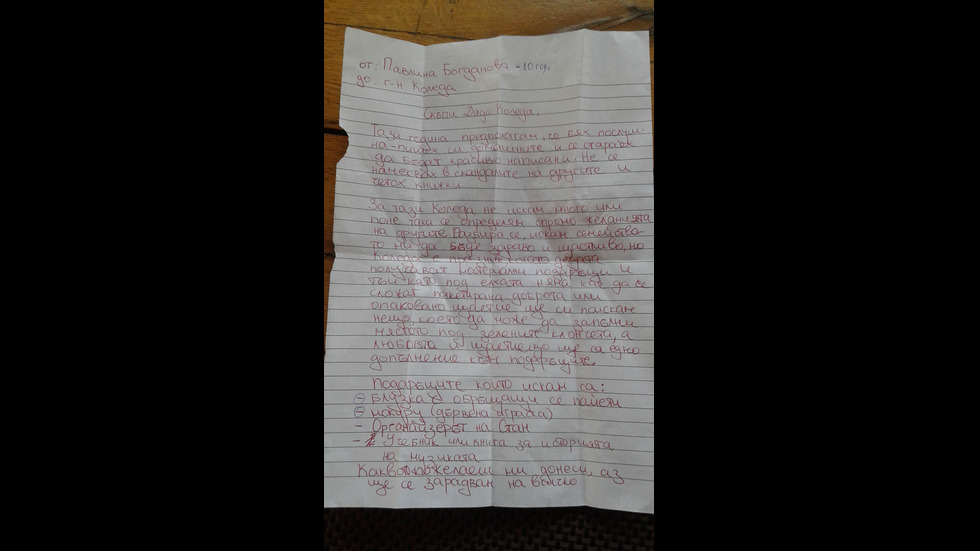 от: Павлина Богданова -10 год.
до: г-н Коледа
Скъпи Дядо Коледа,
Тази година предполагам, че бях послуш-
на-пишех си домашните и се стараех
да бъдат красиво написани. Не се
намесвах в скандалите на другите и
четох книжки.
За тази Коледа не искам много или
поне така се определям спрямо желанията
на другите. Разбира се, искам семейства-
то ми да бъде здраво и щастливо, но
Коледа е празник, когато децата
получават материални подаръци и
тъй като под елхата няма как да се
сложат пакетирана доброта или
опаковано щастие ще си поискам
нещо, което да може да запълни
мястото под зелените клончета, а
любовта и щастието ще са едно
допълнение към подаръците.
Подаръците които искам са:
- Блузка с обръщащи се пайети
- мокуру (дървена играчка)
- Органайзерът на Стан
- Учебник или книга за историята
на музиката
Каквото пожелаеш ми донеси, аз
ще се зарадвам на всичко.